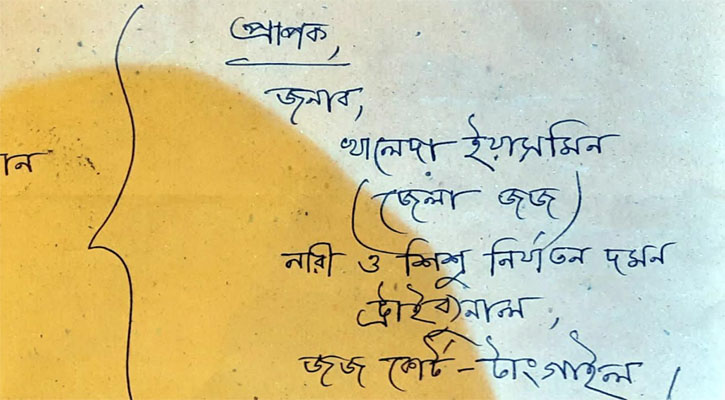 প্রাপক,
জনাব,
খালেদা ইয়াসমিন
(জেলা জজ)
ান
নারী ও শিশু নির্যাতন দমন
ট্রাইব্যুনাল,
জজ কোর্ট - টাংগাইল।